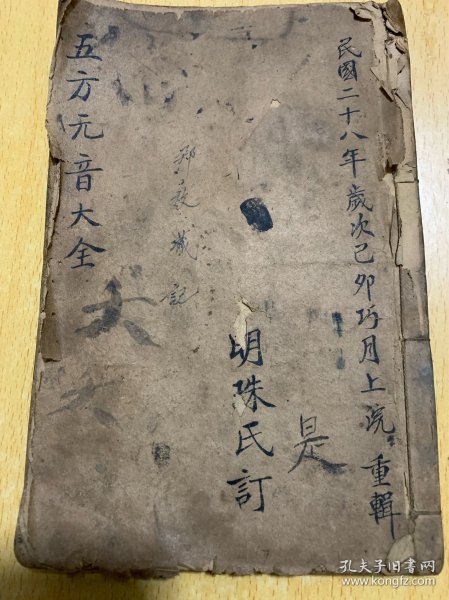 民國二十八年歲次己卯巧月上浣 重輯
是
明珠氏訂
藏記
五方元音大全
大
孔夫子旧书网
www.kongfz.com